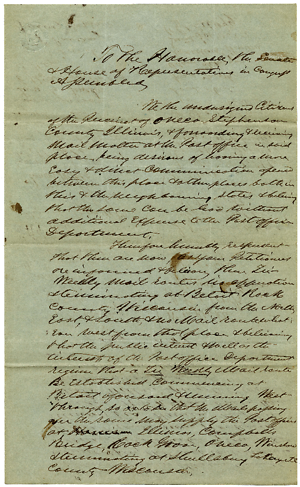 To The Honorable, the Senate
& House of Representatives in Congress
Assembled
We the undersigned Citizens
of the Precinct of Oneco Stephenson
County Illinois, & forwarding & receiving
Mail Matter at the Post office in said
place, being desirous of having a more
Easy & direct Communication opened
between this place & other places both in
this & the Neighbouring States & believing
that the same can be done without
additional Expense to the Post office
Departement,
Therefore humbly represent
that there are now
Weekly Mail routes in opperation
& terminating at Beloit Rock
County Wisconsin from the North
East, & South & no Mail
west from that place & believing
that the public interest as well as the
interest of the Post office Department
require that a Tri Weekly Mail route
Be Established Commencing at
Beloit aforesaid & running West
through so that the Mail passing
over the same may supply the Post offices
at Illinois, Campbells
Bridge, Rock Grove, Oneco, Winslow
& terminating at Shullsburg Lafayette
County Wisconsin.